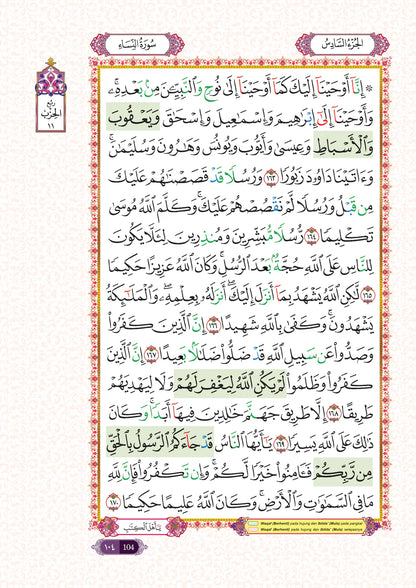 الجزء السادس
سورة النساء
ربع
الحزب
١١
۞ إِنَّآ أَوْحَيْنَآ إِلَيْكَ كَمَآ أَوْحَيْنَآ إِلَىٰ نُوحٍ وَٱلنَّبِيِّـۧنَ مِنۢ بَعْدِهِۦۚ
وَأَوْحَيْنَآ إِلَىٰٓ إِبْرَٰهِيمَ وَإِسْمَـٰعِيلَ وَإِسْحَـٰقَ وَيَعْقُوبَ
وَٱلْأَسْبَاطِ وَعِيسَىٰ وَأَيُّوبَ وَيُونُسَ وَهَـٰرُونَ وَسُلَيْمَـٰنَۚ
وَءَاتَيْنَا دَاوُۥدَ زَبُورًا ١٦٣ وَرُسُلًا قَدْ قَصَصْنَـٰهُمْ عَلَيْكَ
مِن قَبْلُ وَرُسُلًا لَّمْ نَقْصُصْهُمْ عَلَيْكَۚ وَكَلَّمَ ٱللَّهُ مُوسَىٰ
تَكْلِيمًا ١٦٤ رُّسُلًا مُّبَشِّرِينَ وَمُنذِرِينَ لِئَلَّا يَكُونَ
لِلنَّاسِ عَلَى ٱللَّهِ حُجَّةٌۢ بَعْدَ ٱلرُّسُلِۚ وَكَانَ ٱللَّهُ عَزِيزًا حَكِيمًا
١٦٥ لَّـٰكِنِ ٱللَّهُ يَشْهَدُ بِمَآ أَنزَلَ إِلَيْكَۖ أَنزَلَهُۥ بِعِلْمِهِۦۖ وَٱلْمَلَـٰٓئِكَةُ
يَشْهَدُونَۚ وَكَفَىٰ بِٱللَّهِ شَهِيدًا ١٦٦ إِنَّ ٱلَّذِينَ كَفَرُوا۟
وَصَدُّوا۟ عَن سَبِيلِ ٱللَّهِ قَدْ ضَلُّوا۟ ضَلَـٰلًۢا بَعِيدًا ١٦٧ إِنَّ ٱلَّذِينَ
كَفَرُوا۟ وَظَلَمُوا۟ لَمْ يَكُنِ ٱللَّهُ لِيَغْفِرَ لَهُمْ وَلَا لِيَهْدِيَهُمْ
طَرِيقًا ١٦٨ إِلَّا طَرِيقَ جَهَنَّمَ خَـٰلِدِينَ فِيهَآ أَبَدًاۚ وَكَانَ
ذَٰلِكَ عَلَى ٱللَّهِ يَسِيرًا ١٦٩ يَـٰٓأَيُّهَا ٱلنَّاسُ قَدْ جَآءَكُمُ ٱلرَّسُولُ بِٱلْحَقِّ
مِن رَّبِّكُمْ فَـَٔامِنُوا۟ خَيْرًا لَّكُمْۚ وَإِن تَكْفُرُوا۟ فَإِنَّ لِلَّهِ
مَا فِى ٱلسَّمَـٰوَٰتِ وَٱلْأَرْضِۚ وَكَانَ ٱللَّهُ عَلِيمًا حَكِيمًا ١٧٠
يَـٰٓأَهْلَ ٱلْكِتَـٰبِ
Waqaf (Berhenti) pada hujung dan Ibtida' (Mula) pada pangkal
Waqaf (Berhenti) pada hujung dan Ibtida' (Mula) selepasnya
104 ١٠٤